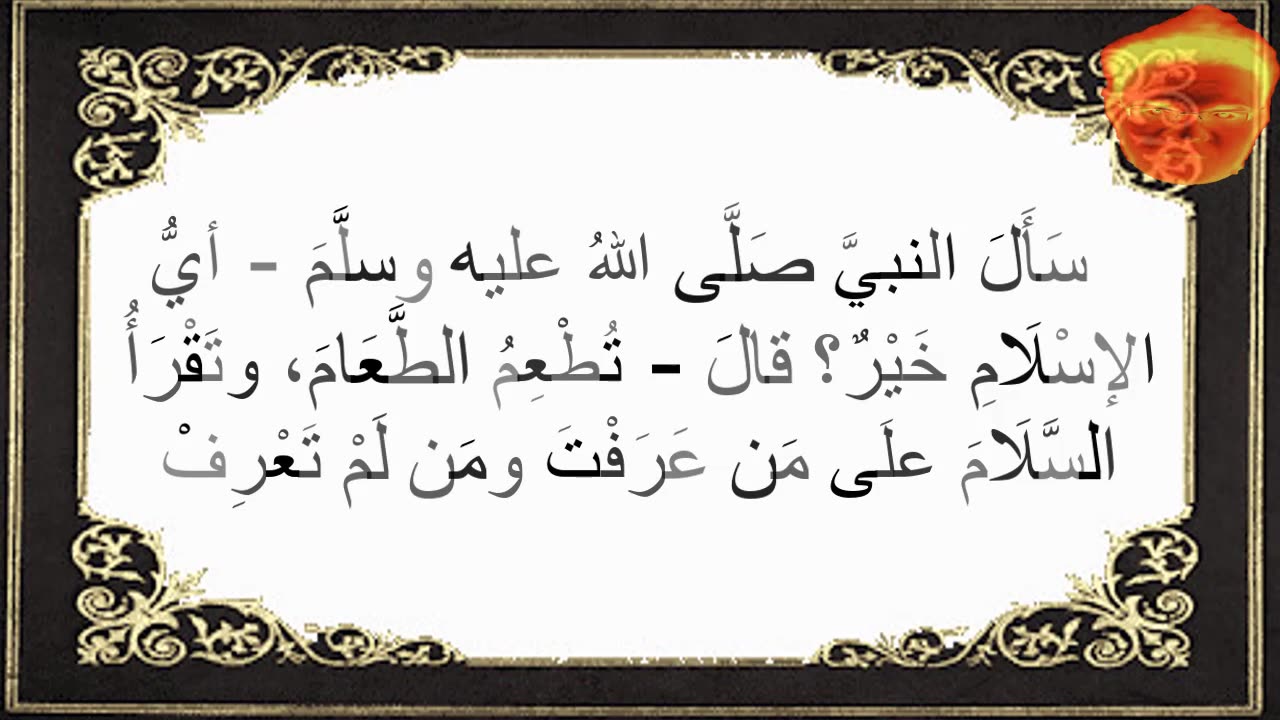 سَأَلَ النبيَّ صَلَّى اللهُ عليه وسلَّمَ - أيُّ
الإسْلَامِ خَيْرٌ؟ قالَ - تُطْعِمُ الطَّعَامَ، وتَقْرَأُ
السَّلَامَ علَى مَن عَرَفْتَ ومَن لَمْ تَعْرِفْ